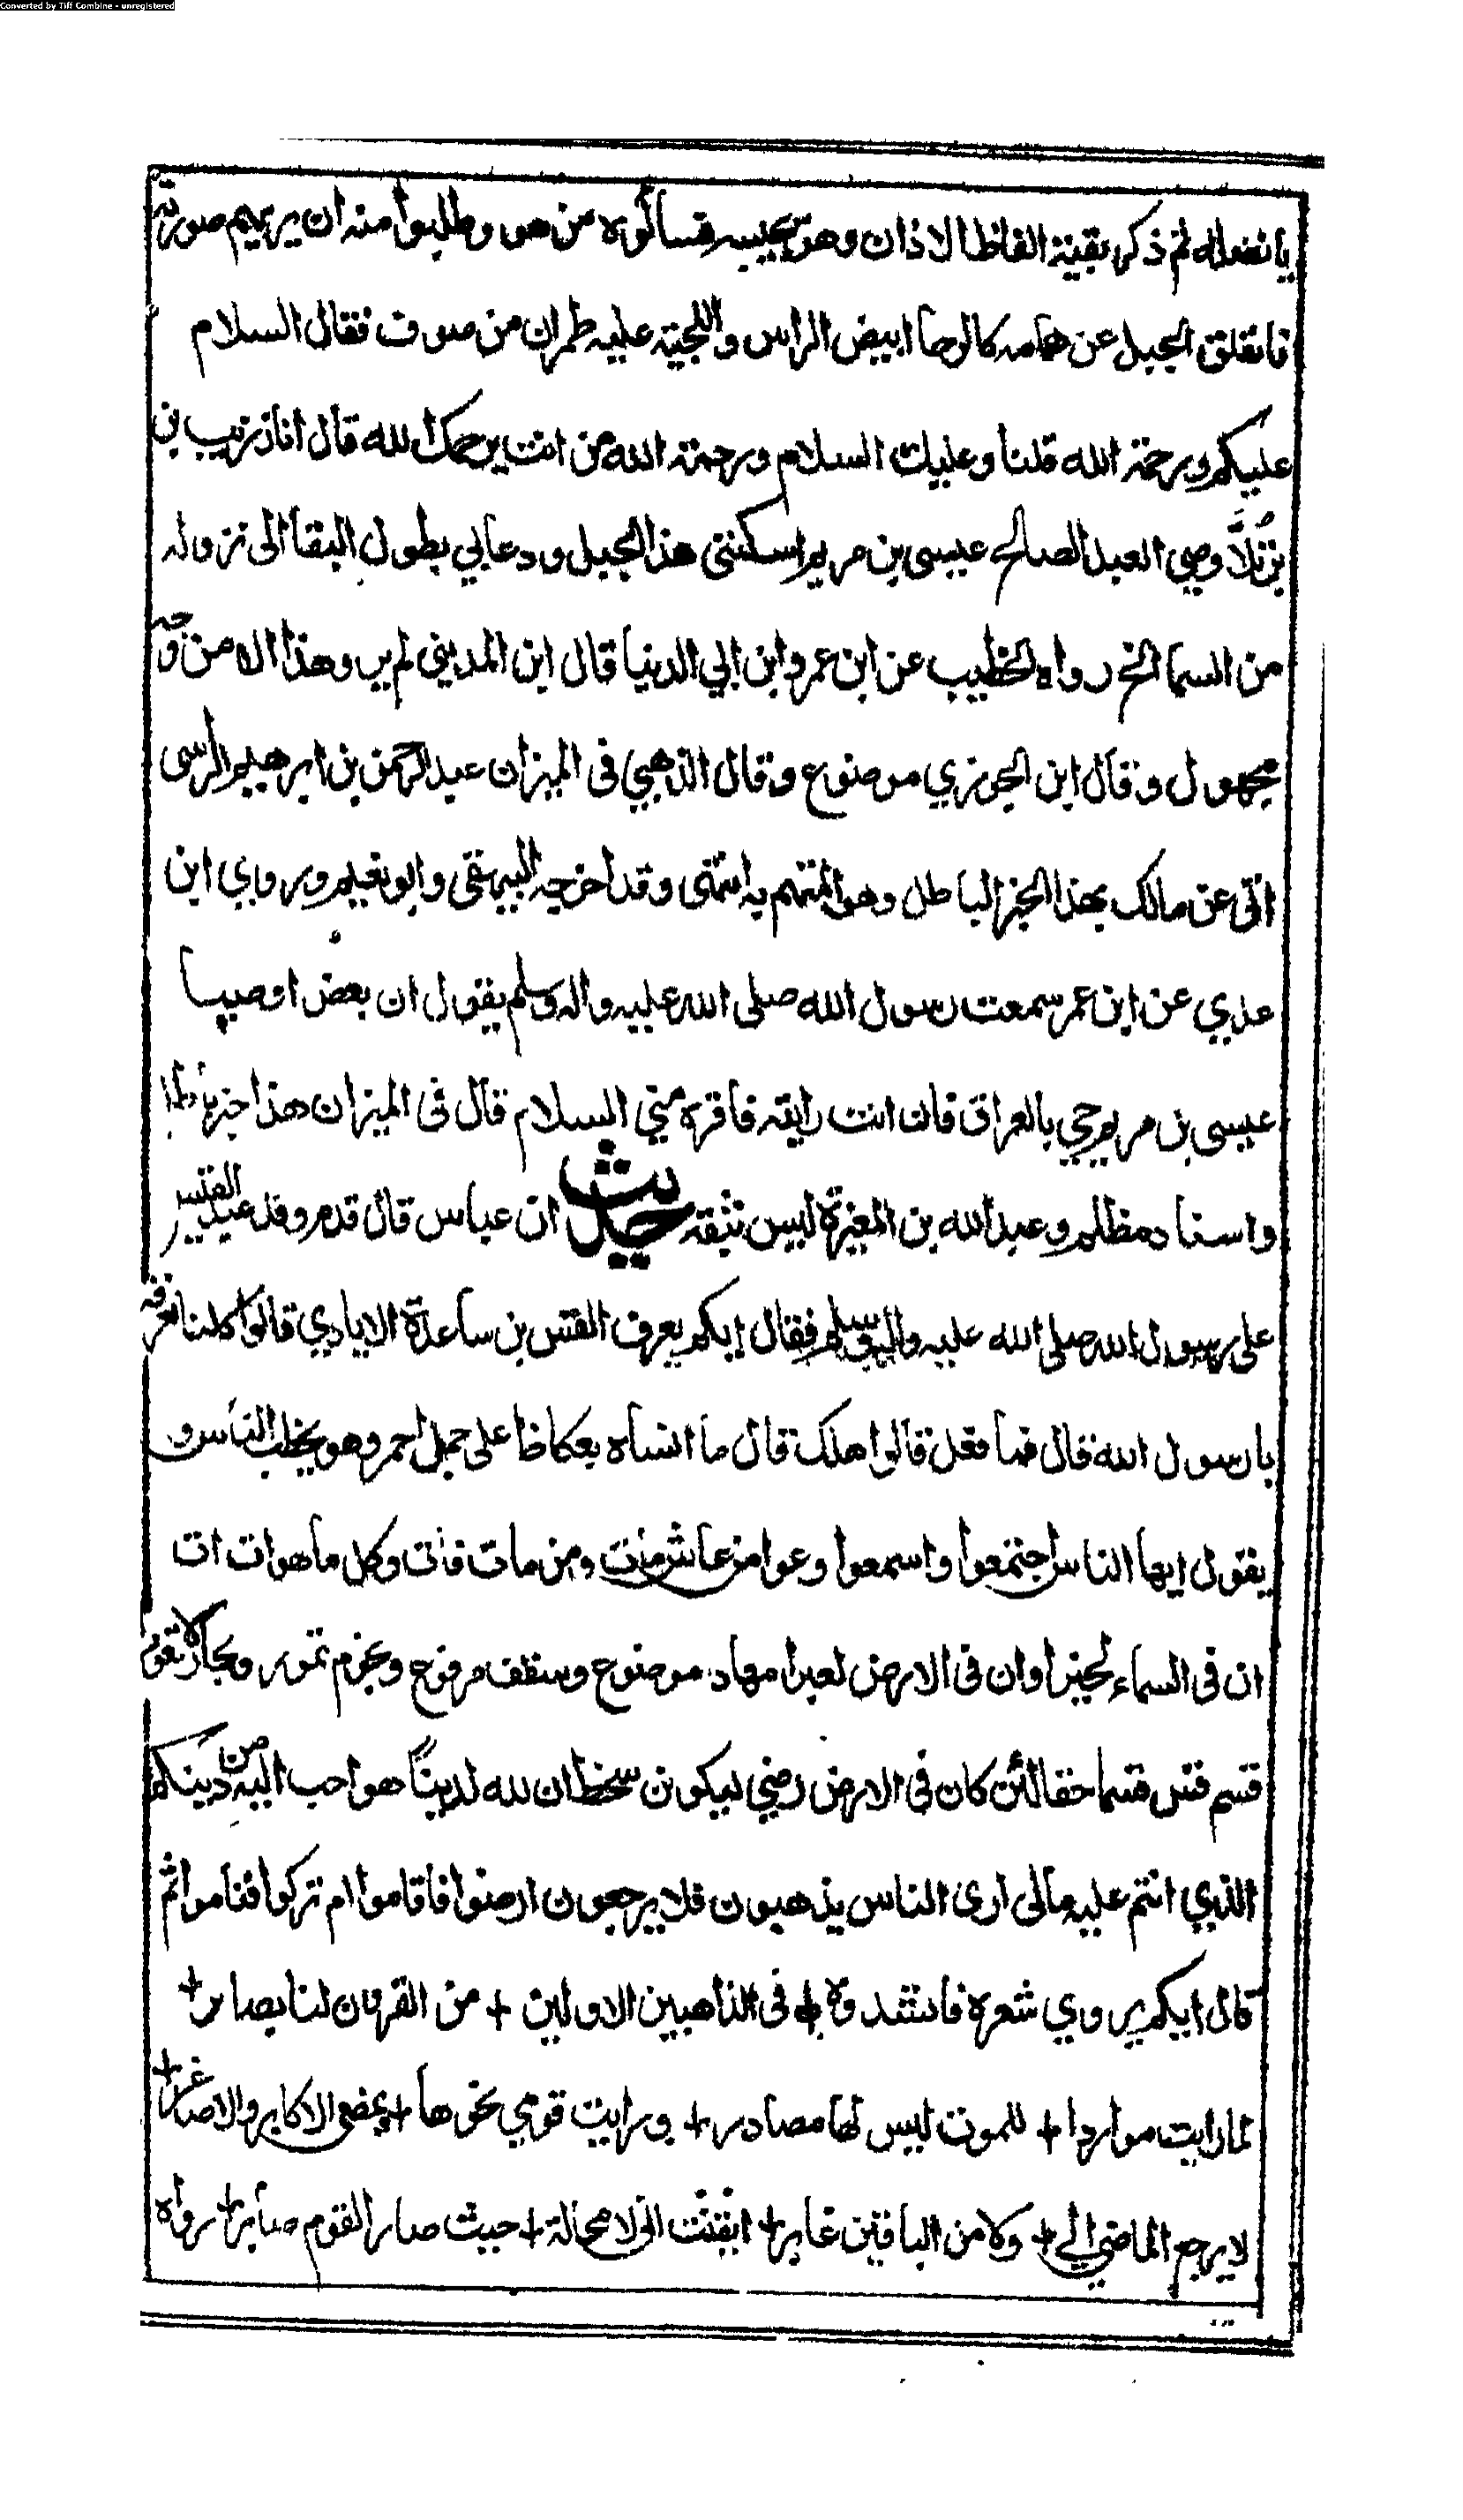 Converted by Tiff Combine - unregistered
يا نضله ثم ذكر بقية الفاظ الاذان وهو يجيبه فسألوه من هو وطلبوا منه ان يريهم صورته
فانفلق الجبل عن هامه كالرحا ابيض الراس واللحية عليه طمران من صوف فقال السلام
عليكم ورحمة الله قلنا وعليك السلام ورحمة الله من انت يرحمك الله قال انا زريب بن
برثملا وصي العبد الصالح عيسى بن مريم اسكنني هذا الجبل ودعا بي بطول البقا الى نزوله
من السما الخ رواه الخطيب عن ابن عمر وابن ابي الدنيا قال ابن المديني لم يرو هذا الا من وجه
مجهول وقال ابن الجوزي موضوع وقال الذهبي في الميزان عبد الرحمن بن ابرهيم الراسى
اتى عن مالك بهذا الخبر الباطل وهو المتهم به انتهى وقد اخرجه البيهقي وابو نعيم وروي ابن
عدي عن ابن عمر سمعت رسول الله صلى الله عليه واله وسلم يقول ان بعض اوصيا
عيسى بن مريم حي بالعراق فان انت رايته فاقره مني السلام قال في الميزان هذا خبر باطل
واسناده مظلم وعبد الله بن المغيرة ليس بثقه حديث ابن عباس قال قدم وفد عبد القيس
على رسول الله صلى الله عليه واله وسلم فقال ايكم يعرف القس بن ساعدة الايادي قالوا كلنا نعرفه
يا رسول الله قال فما فعل قالوا هلك قال ما انساه بعكاظ على جمل احمر وهو يخطب الناس و
يقول ايها الناس اجتمعوا واسمعوا وعوا من عاش مات ومن مات فات وكل ما هو ات ات
ان في السماء لخبرا وان في الارض لعبرا مهاد موضوع وسقف مرفوع ونجوم تمور وبحار لا تغور
قسم قس قسما حقا لئن كان في الارض رضي ليكونن سخط ان لله لدينا هو احب اليه من دينكم
الذي انتم عليه مالى ارى الناس يذهبون فلا يرجعون ارضوا فاقاموا ام تركوا فناموا ثم
قال ايكم يروي شعره فانشدوه + في الذاهبين الاولين + من القرون لنا بصاير +
لما رايت مواردا + للموت ليس لها مصادر + ورايت قومي نحوها + يمضي الاكابر والاصاغر +
لا يرجع الماضي الي + ولا من الباقين غابر + ايقنت اني لا محالة + حيث صار القوم صاير + رواه